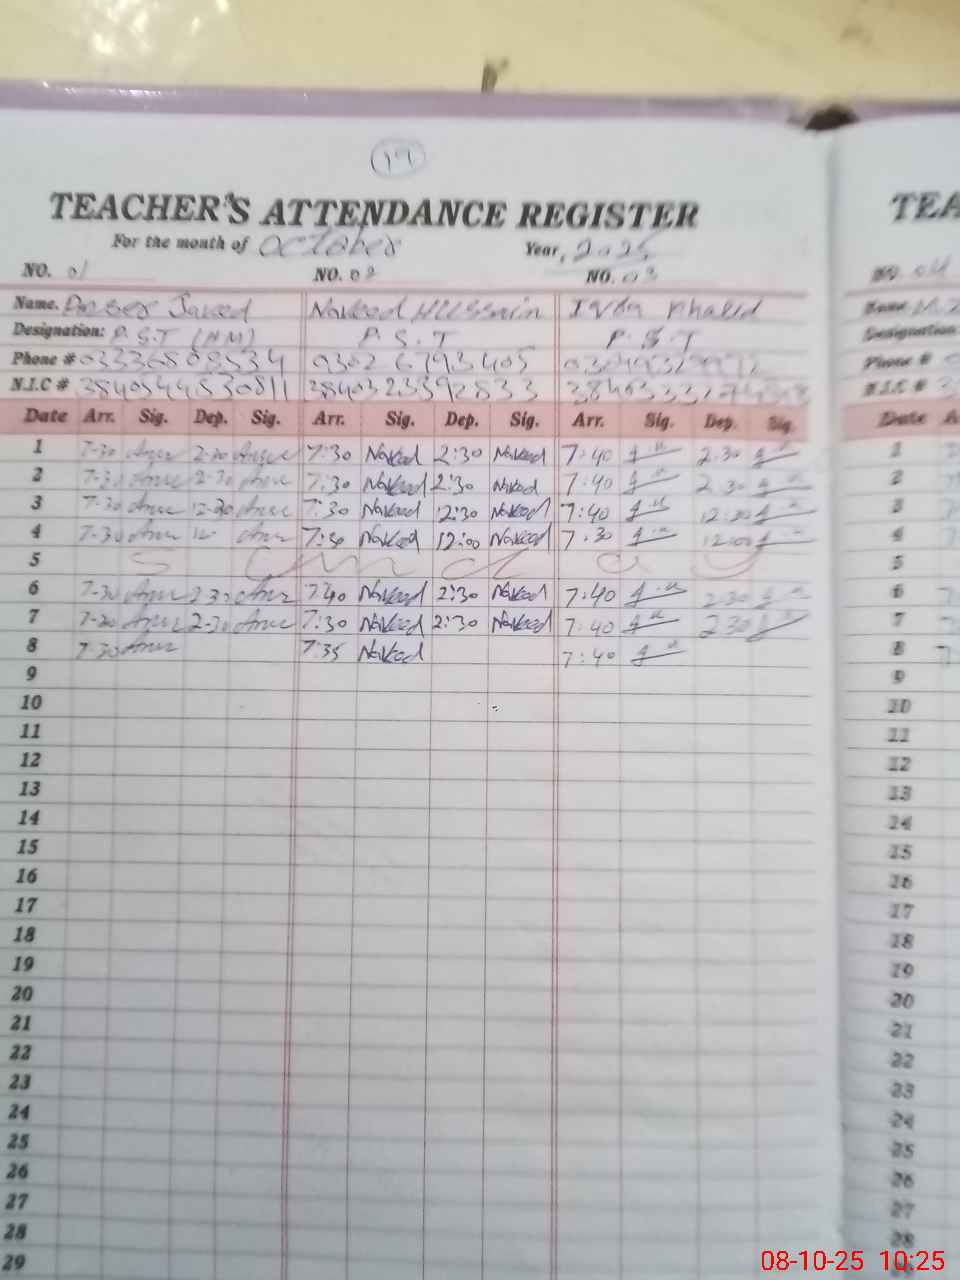 17
TEACHER'S ATTENDANCE REGISTER TEA
For the month of October Year, 2025
NO. 01 NO. 02 NO. 03 NO. 04
Name. Javed Naveed Hussain Name. Khalid Name
Designation: P.S.T (HM) P.S.T P.S.T Designation
Phone # 03336808534 0302 6793405 Phone #
N.I.C # 3840544530811 3840323392833 N.I.C #
Date Arr. Sig. Dep. Sig. Arr. Sig. Dep. Sig. Arr. Sig. Dep. Sig. Date A
1 7-30 2-30 7:30 Naveed 2:30 Naveed 7:40 2.30 1
2 7-30 2-30 7:30 Naveed 2:30 Naveed 7:40 2.30 2
3 7-30 12-30 7:30 Naveed 12:30 Naveed 7:40 12:30 3
4 7-30 12- 7:30 Naveed 12:00 Naveed 7.30 12:00 4
5 Sunday 5
6 7-30 2-30 7:40 Naveed 2:30 Naveed 7:40 2.30 6
7 7-30 2-30 7:30 Naveed 2:30 Naveed 7:40 2.30 7
8 7-30 7:35 Naveed 7:40 8
9 9
10 10
11 11
12 12
13 13
14 14
15 15
16 16
17 17
18 18
19 19
20 20
21 21
22 22
23 23
24 24
25 25
26 26
27 27
28 28
29
08-10-25 10:25